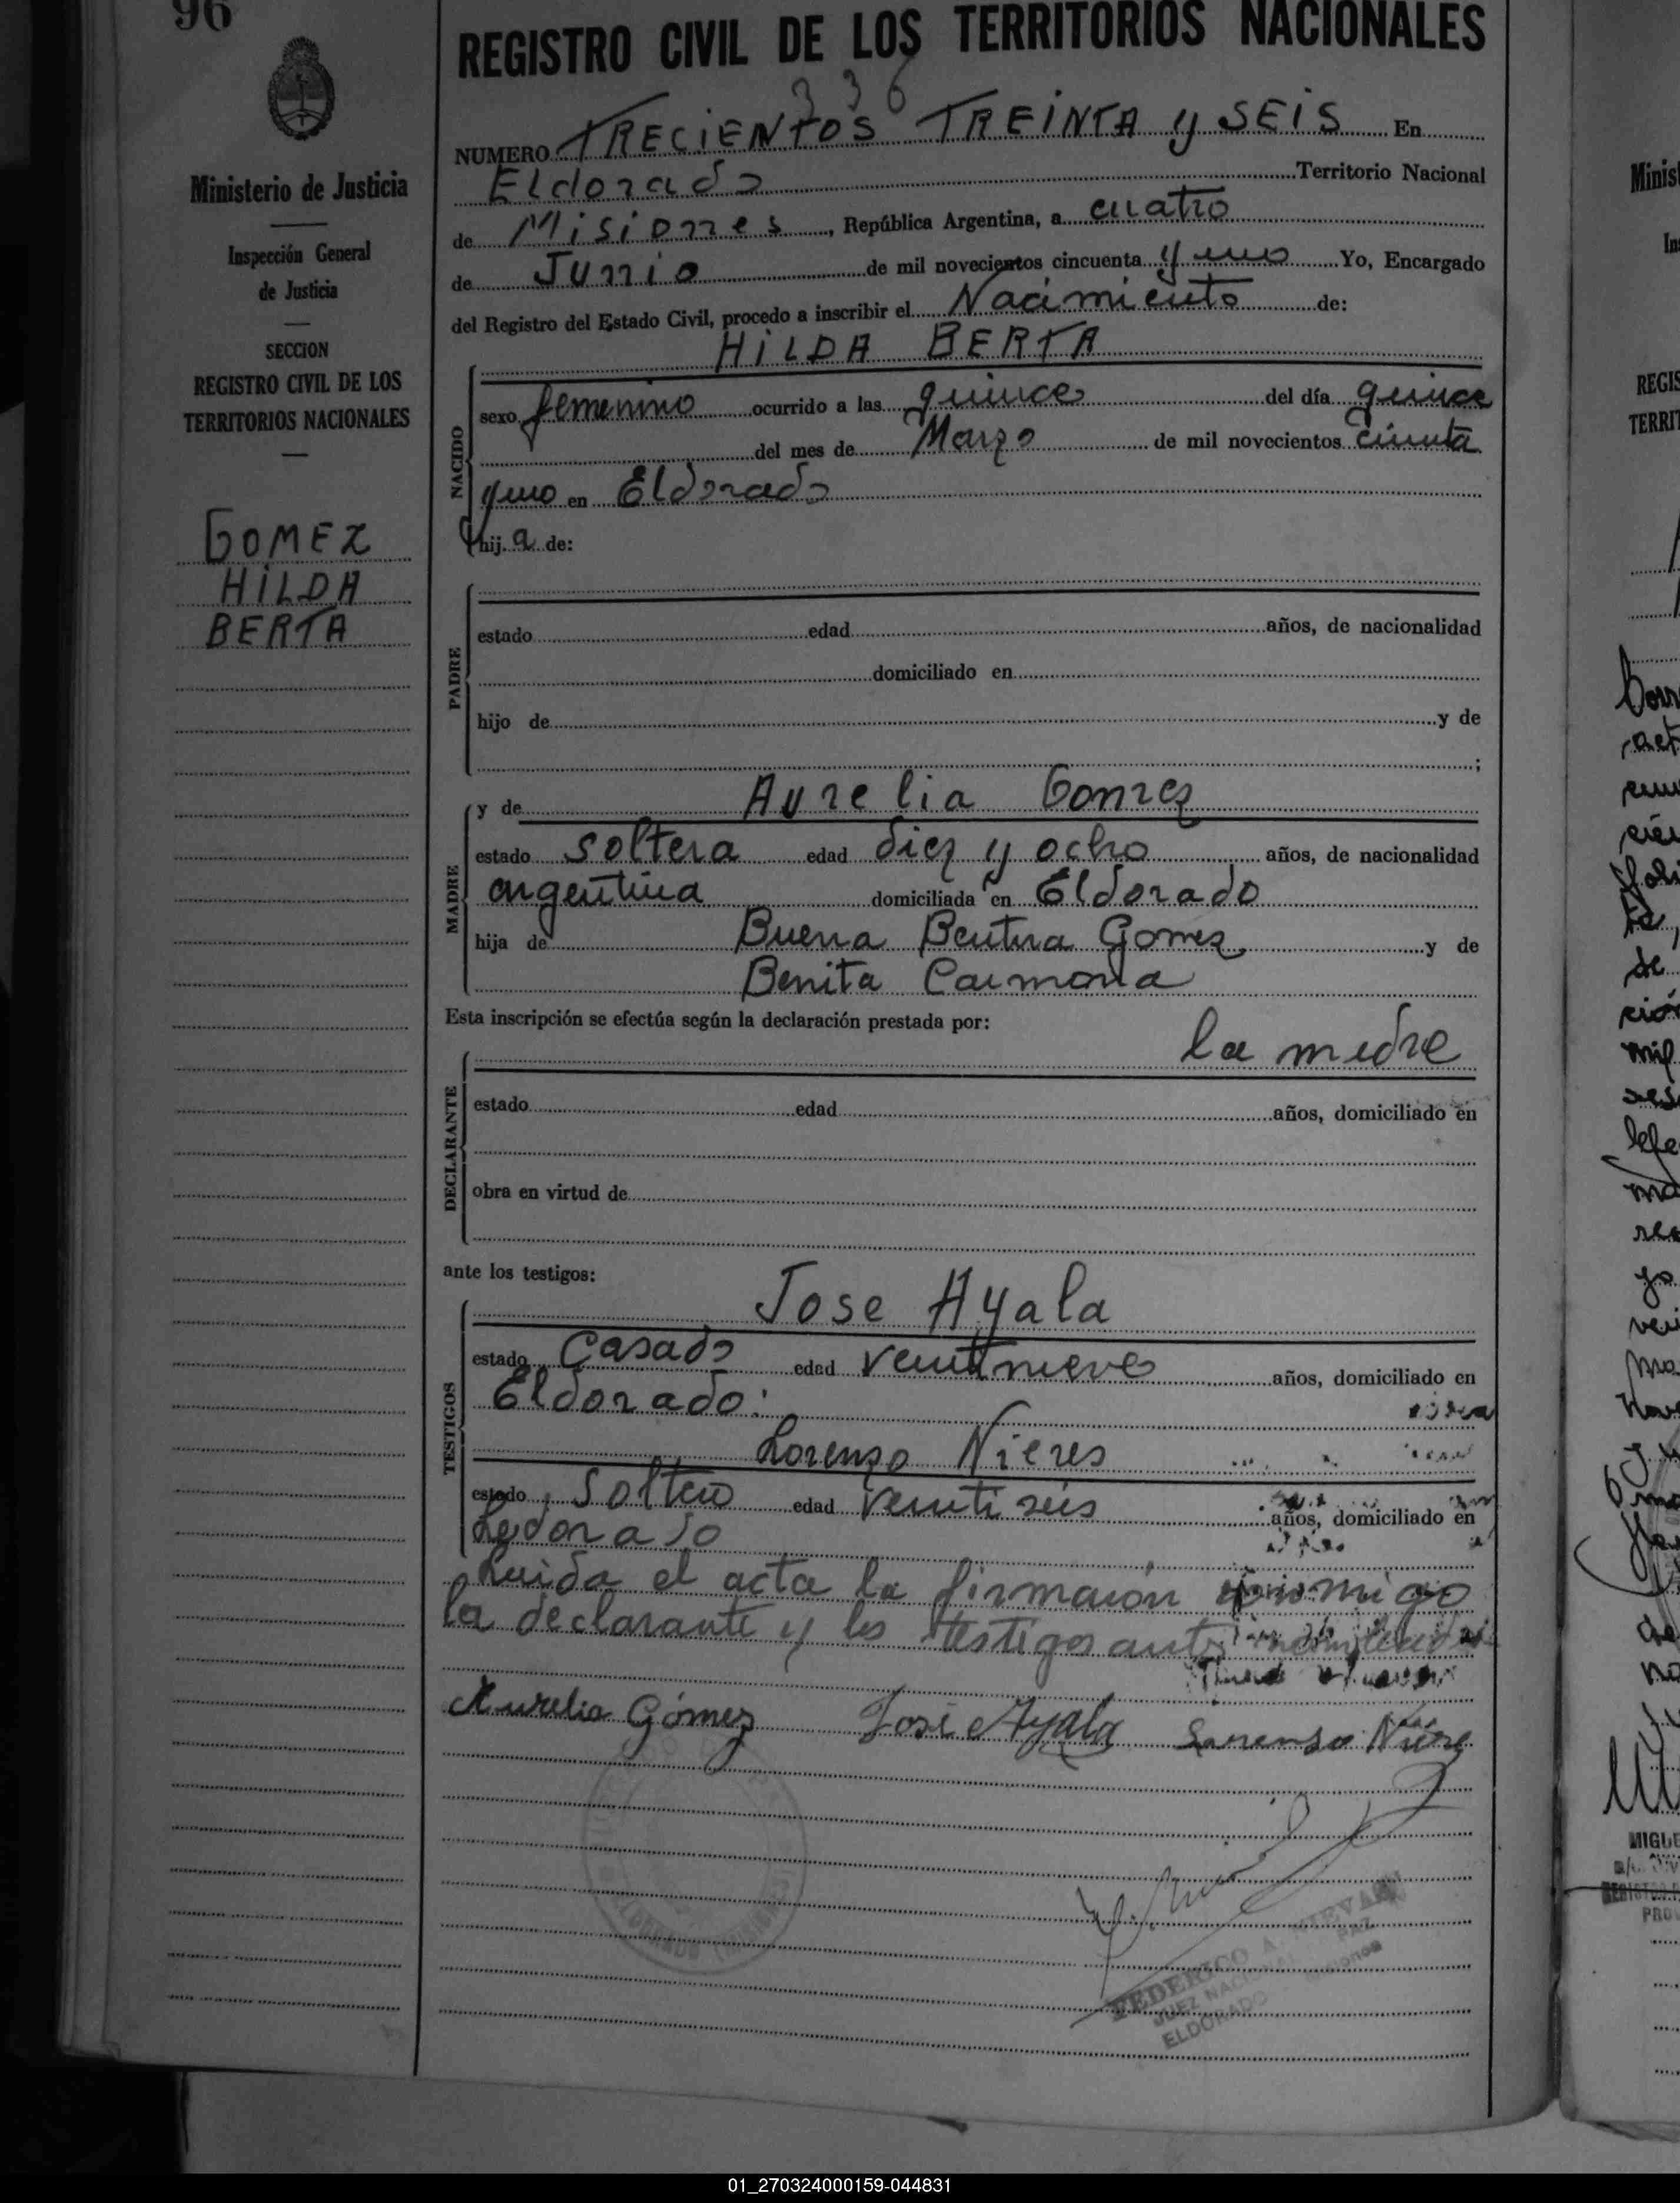 96
REGISTRO CIVIL DE LOS TERRITORIOS NACIONALES
336
NUMERO TRECIENTOS TREINTA y SEIS En
Eldorado Territorio Nacional
de Misiones, República Argentina, a cuatro
de Junio de mil novecientos cincuenta y uno Yo, Encargado
del Registro del Estado Civil, procedo a inscribir el Nacimiento de:
HILDA BERTA
Ministerio de Justicia
Inspección General
de Justicia
SECCION
REGISTRO CIVIL DE LOS
TERRITORIOS NACIONALES
GOMEZ
HILDA
BERTA
NACIDO
sexo femenino ocurrido a las quince del día quince
del mes de Marzo de mil novecientos
y uno en Eldorado
hija de:
PADRE
estado edad años, de nacionalidad
domiciliado en
hijo de y de
;
MADRE
y de Aurelia Gomez
estado soltera edad diez y ocho años, de nacionalidad
argentina domiciliada en Eldorado
hija de Buena Gomez y de
Benita Carmona
Esta inscripción se efectúa según la declaración prestada por:
la madre
DECLARANTE
estado edad años, domiciliado en
obra en virtud de
ante los testigos:
TESTIGOS
Jose Ayala
estado Casado edad años, domiciliado en
Eldorado.
Lorenzo Nieres
estado Soltero edad veintiseis años, domiciliado en
Leida el acta la conmigo
la declarante y los testigos
Aurelia Gómez José Ayala Lorenso
FEDERICO A.
JUEZ NACIONAL PAZ
ELDORADO Misiones
01_270324000159-044831